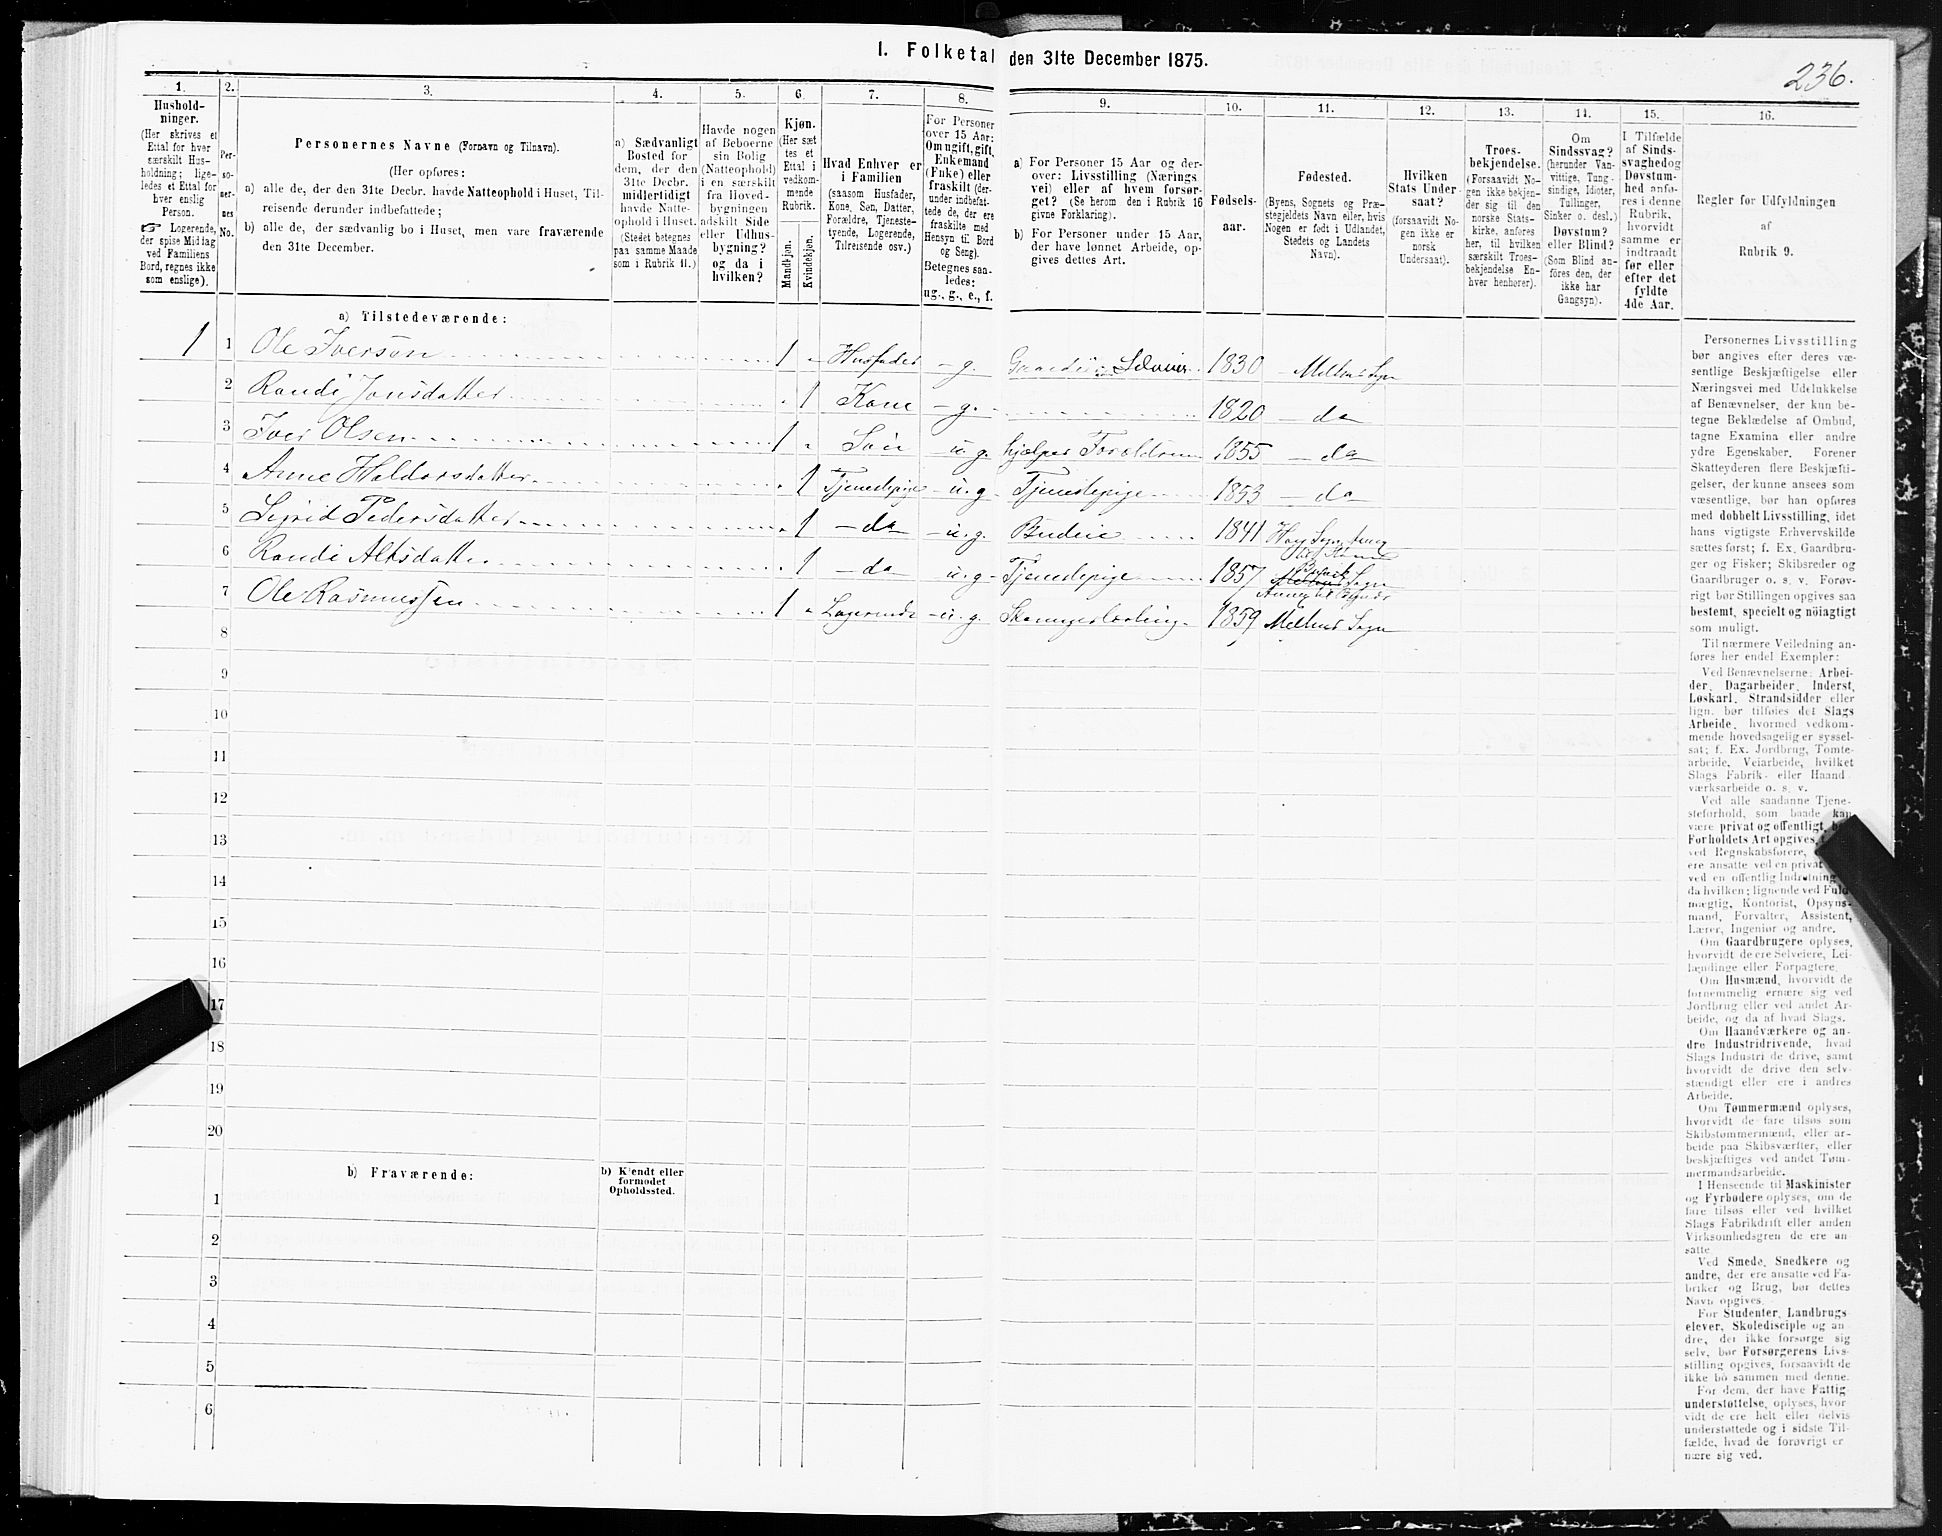 I. Folketal den 31te December 1875.
236.
1.
Hushold-
ninger.
(Her skrives et
Ettal for hver
særskilt Hus-
holdning; lige-
ledes et Ettal for
hver enslig
Person.
☞ Logerende,
der spise Middag
ved Familiens
Bord, regnes ikke
som enslige).
2.
Per-
so-
ner-
nes
No.
3.
Personernes Navne (Fornavn og Tilnavn).
(Her opføres:
a) alle de, der den 31te Decbr. havde Natteophold i Huset, Til-
reisende derunder indbefattede;
b) alle de, der sædvanlig bo i Huset, men vare fraværende
den 31te December.
4.
a) Sædvanligt
Bosted for
dem, der den
31te Decbr.
midlertidigt
havde Natte-
ophold i Huset.
(Stedet betegnes
paa samme Maade
som i Rubrik 11.)
5.
Havde nogen
af Beboerne
sin Bolig
(Natteophold)
i en særskilt
fra Hoved-
bygningen
adskilt Side
eller Udhus-
bygning?
og da i
hvilken?
6.
Kjøn.
(Her sæt
tes et
Ettal i
vedkom-
mende
Rubrik.
Mandkjøn.
Kvindekjøn.
7.
Hvad Enhver er
i Familien
(saasom Husfader,
Kone, Søn, Datter,
Forældre, Tjeneste-
tyende, Logerende,
Tilreisende osv.)
8.
For Personer
over 15 Aar:
Om ugift, gift,
Enkemand
(Enke) eller
fraskilt (der-
under indbefat-
tede de, der ere
fraskilte med
Hensyn til Bord
og Seng).
Betegnes saa-
ledes:
ug., g., e., f.
9.
a) For Personer 15 Aar og der-
over: Livsstilling (Nærings
vei) eller af hvem forsør-
get? (Se herom den i Rubrik 16
givne Forklaring).
b) For Personer under 15 Aar,
der have lønnet Arbeide, op-
gives dettes Art.
10.
Fødsels-
aar.
11.
Fødested.
(Byens, Sognets og Præ-
stegjeldets Navn eller, hvis
Nogen er født i Udlandet,
Stedets og Landets
Navn).
12.
Hvilken
Stats Under-
saat?
(forsaavidt No-
gen ikke er
norsk
Undersaat).
13.
Troes-
bekjendelse.
(Forsaavidt No-
gen ikke bekjen-
der sig til den
norske Stats-
kirke, anføres
her, til hvilken
særskilt Troes-
bekjendelse En-
hver henhører).
14.
Om
Sindssvag?
(herunder Van-
vittige, Tung-
sindige, Idioter,
Tullinger,
Sinker o. desl.)
Døvstum?
eller Blind?
(Som Blind an-
føres den, der
ikke har
Gangsyn).
15.
I Tilfælde
af Sinds-
svaghed og
Døvstum-
hed anfø-
res i denne
Rubrik,
hvorvidt
samme er
indtraadt
før eller
efter det
fyldte
4de Aar.
16.
Regler for Udfyldningen
af
Rubrik 9.
a) Tilstedeværende:
1 1 Ole Iversøn 1 Husfader g. Selveier 1830 Melhus Sogn
2 Randi Jonsdatter 1 Kone g. 1820 da
3 Iver Olsen 1 Søn u. g. hjælper Forældrene 1855 da
4 Anne Haldorsdatter 1 Tjenestepige u. g. Tjenestepige 1853 da
5 Sigrid Pedersdatter 1 da u. g. Budeie 1841
6 Randi 1 da u. g. Tjenestepige 1857
7 Ole Rasmussen 1 Logerende u. g. 1859 Melhus Sogn
8
9
10
11
12
13
14
15
16
17
18
19
20
b) Fraværende:
b) Kjendt eller
formodet
Opholdssted.
1
2
3
4
5
6
Personernes Livsstilling
bør angives efter deres væ-
sentlige Beskjæftigelse eller
Næringsvei med Udelukkelse
af Benævnelser, der kun be-
tegne Beklædelse af Ombud,
tagne Examina eller andre
ydre Egenskaber. Forener
Skatteyderen flere Beskjæfti-
gelser, der kunne ansees som
væsentlige, bør han opføres
med dobbelt Livsstilling, idet
hans vigtigste Erhvervskilde
sættes først; f. Ex. Gaardbru-
ger og Fisker; Skibsreder og
Gaardbruger o. s. v. Forøv-
rigt bør Stillingen opgives saa
bestemt, specielt og nöiagtigt
som muligt.
Til nærmere Veiledning an-
føres her endel Exempler:
Ved Benævnelserne: Arbei-
der, Dagarbeider, Inderst,
Løskarl, Strandsidder eller
lign. bør tilføies det Slags
Arbeide, hvormed vedkom-
mende hovedsagelig er syssel-
sat; f. Ex. Jordbrug, Tomte-
arbeide, Veiarbeide, hvilket
Slags Fabrik- eller Haand-
værksarbeide o. s. v.
Ved alle saadanne Tjene-
steforhold, som baade kan
være privat og offentligt, bør
Forholdets Art opgives,
ved Regnskabsførere,
ere ansatte ved en privat
ved en offentlig Indretning
da hvilken; lignende ved Fuld-
mægtig, Kontorist, Opsyns-
mand, Forvalter, Assistent,
Lærer, Ingeniør og andre.
Om Gaardbrugere oplyses,
hvorvidt de ere Selveiere, Lei-
lændinge eller Forpagtere.
Om Husmænd, hvorvidt de
fornemmelig ernære sig ved
Jordbrug eller ved andet Ar-
beide, og da af hvad Slags.
Om Haandværkere og an-
dre Industridrivende, hvad
Slags Industri de drive, samt
hvorvidt de drive den selv-
stændigt eller ere i andres
Arbeide.
Om Tømmermænd oplyses,
hvorvidt de fare tilsøs som
Skibstømmermænd, eller ar-
beide paa Skibsværfter, eller
beskjæftiges ved andet Tøm-
mermandsarbeide.
I Henseende til Maskinister
og Fyrbødere oplyses, om de
fare tilsøs eller ved hvilket
Slags Fabrikdrift eller anden
Virksomhedsgren de ere an-
satte
Ved Smede, Snedkere og
andre, der ere ansatte ved Fa-
briker og Brug, bør dettes
Navn opgives.
For Studenter, Landbrugs-
elever, Skoledisciple og an-
dre, der ikke forsørge sig
selv, bør Forsørgerens Livs-
stilling opgives, forsaavidt de
ikke bo sammen med denne.
For dem, der have Fattig-
understøttelse, oplyses, hvor-
vidt de ere helt eller delvis
understøttede og i sidste Til-
fælde, hvad de forøvrigt er-
nære sig ved.